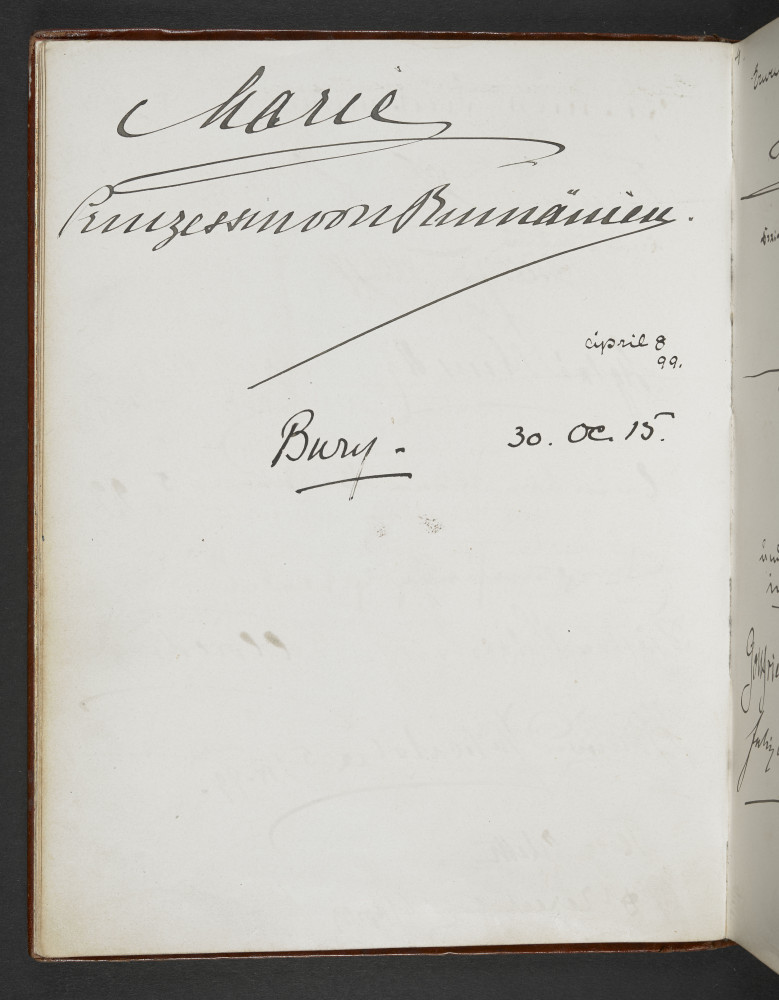 Marie
Prinzessin von Rumänien.
April 8
99.
Bury -
30. Oc. 15.